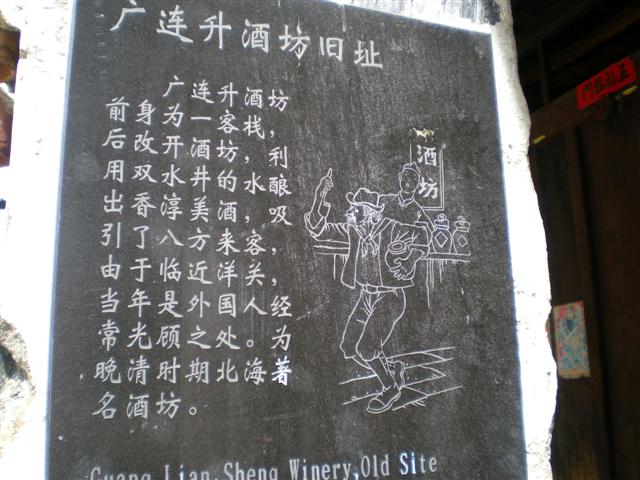 广连升酒坊旧址
广连升酒坊，
前身为一客栈，
后改开酒坊，利
用双水井的水，酿
出香淳美酒，吸
引了八方来客，
由于临近洋关，
当年是外国人经
常光顾之处。为
晚清时期北海著
名酒坊。
Guang Lian Sheng Winery,Old Site
酒坊
五福臨門